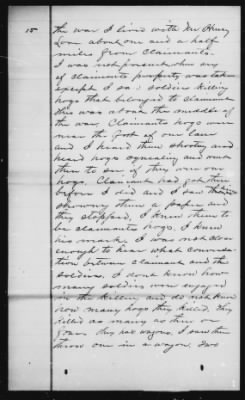 15
the war I lived with Mr Henry
Love about one and a half
miles from Claimants.
I was not present when any
of claimants property was taken
except I saw soldiers killing
hogs that belonged to claimant
this was about the middle of
the war. Claimants hogs were
near the foot of our lane
and I heard them shooting and
heard hogs squealing and went
then to see if they were our
hogs, Claimant had got there
before I did and I saw him
showing them a paper and
they stopped, I knew them to
be claimants hogs. I knew
his mark. I was not close
enough to hear what conver-
sation between claimant and the
soldiers. I dont know how
many soldiers were engaged
in the killing and do not know
how many hogs they killed, they
killed as many as three or
four. they had wagons. I saw them
throw one in a wagon.